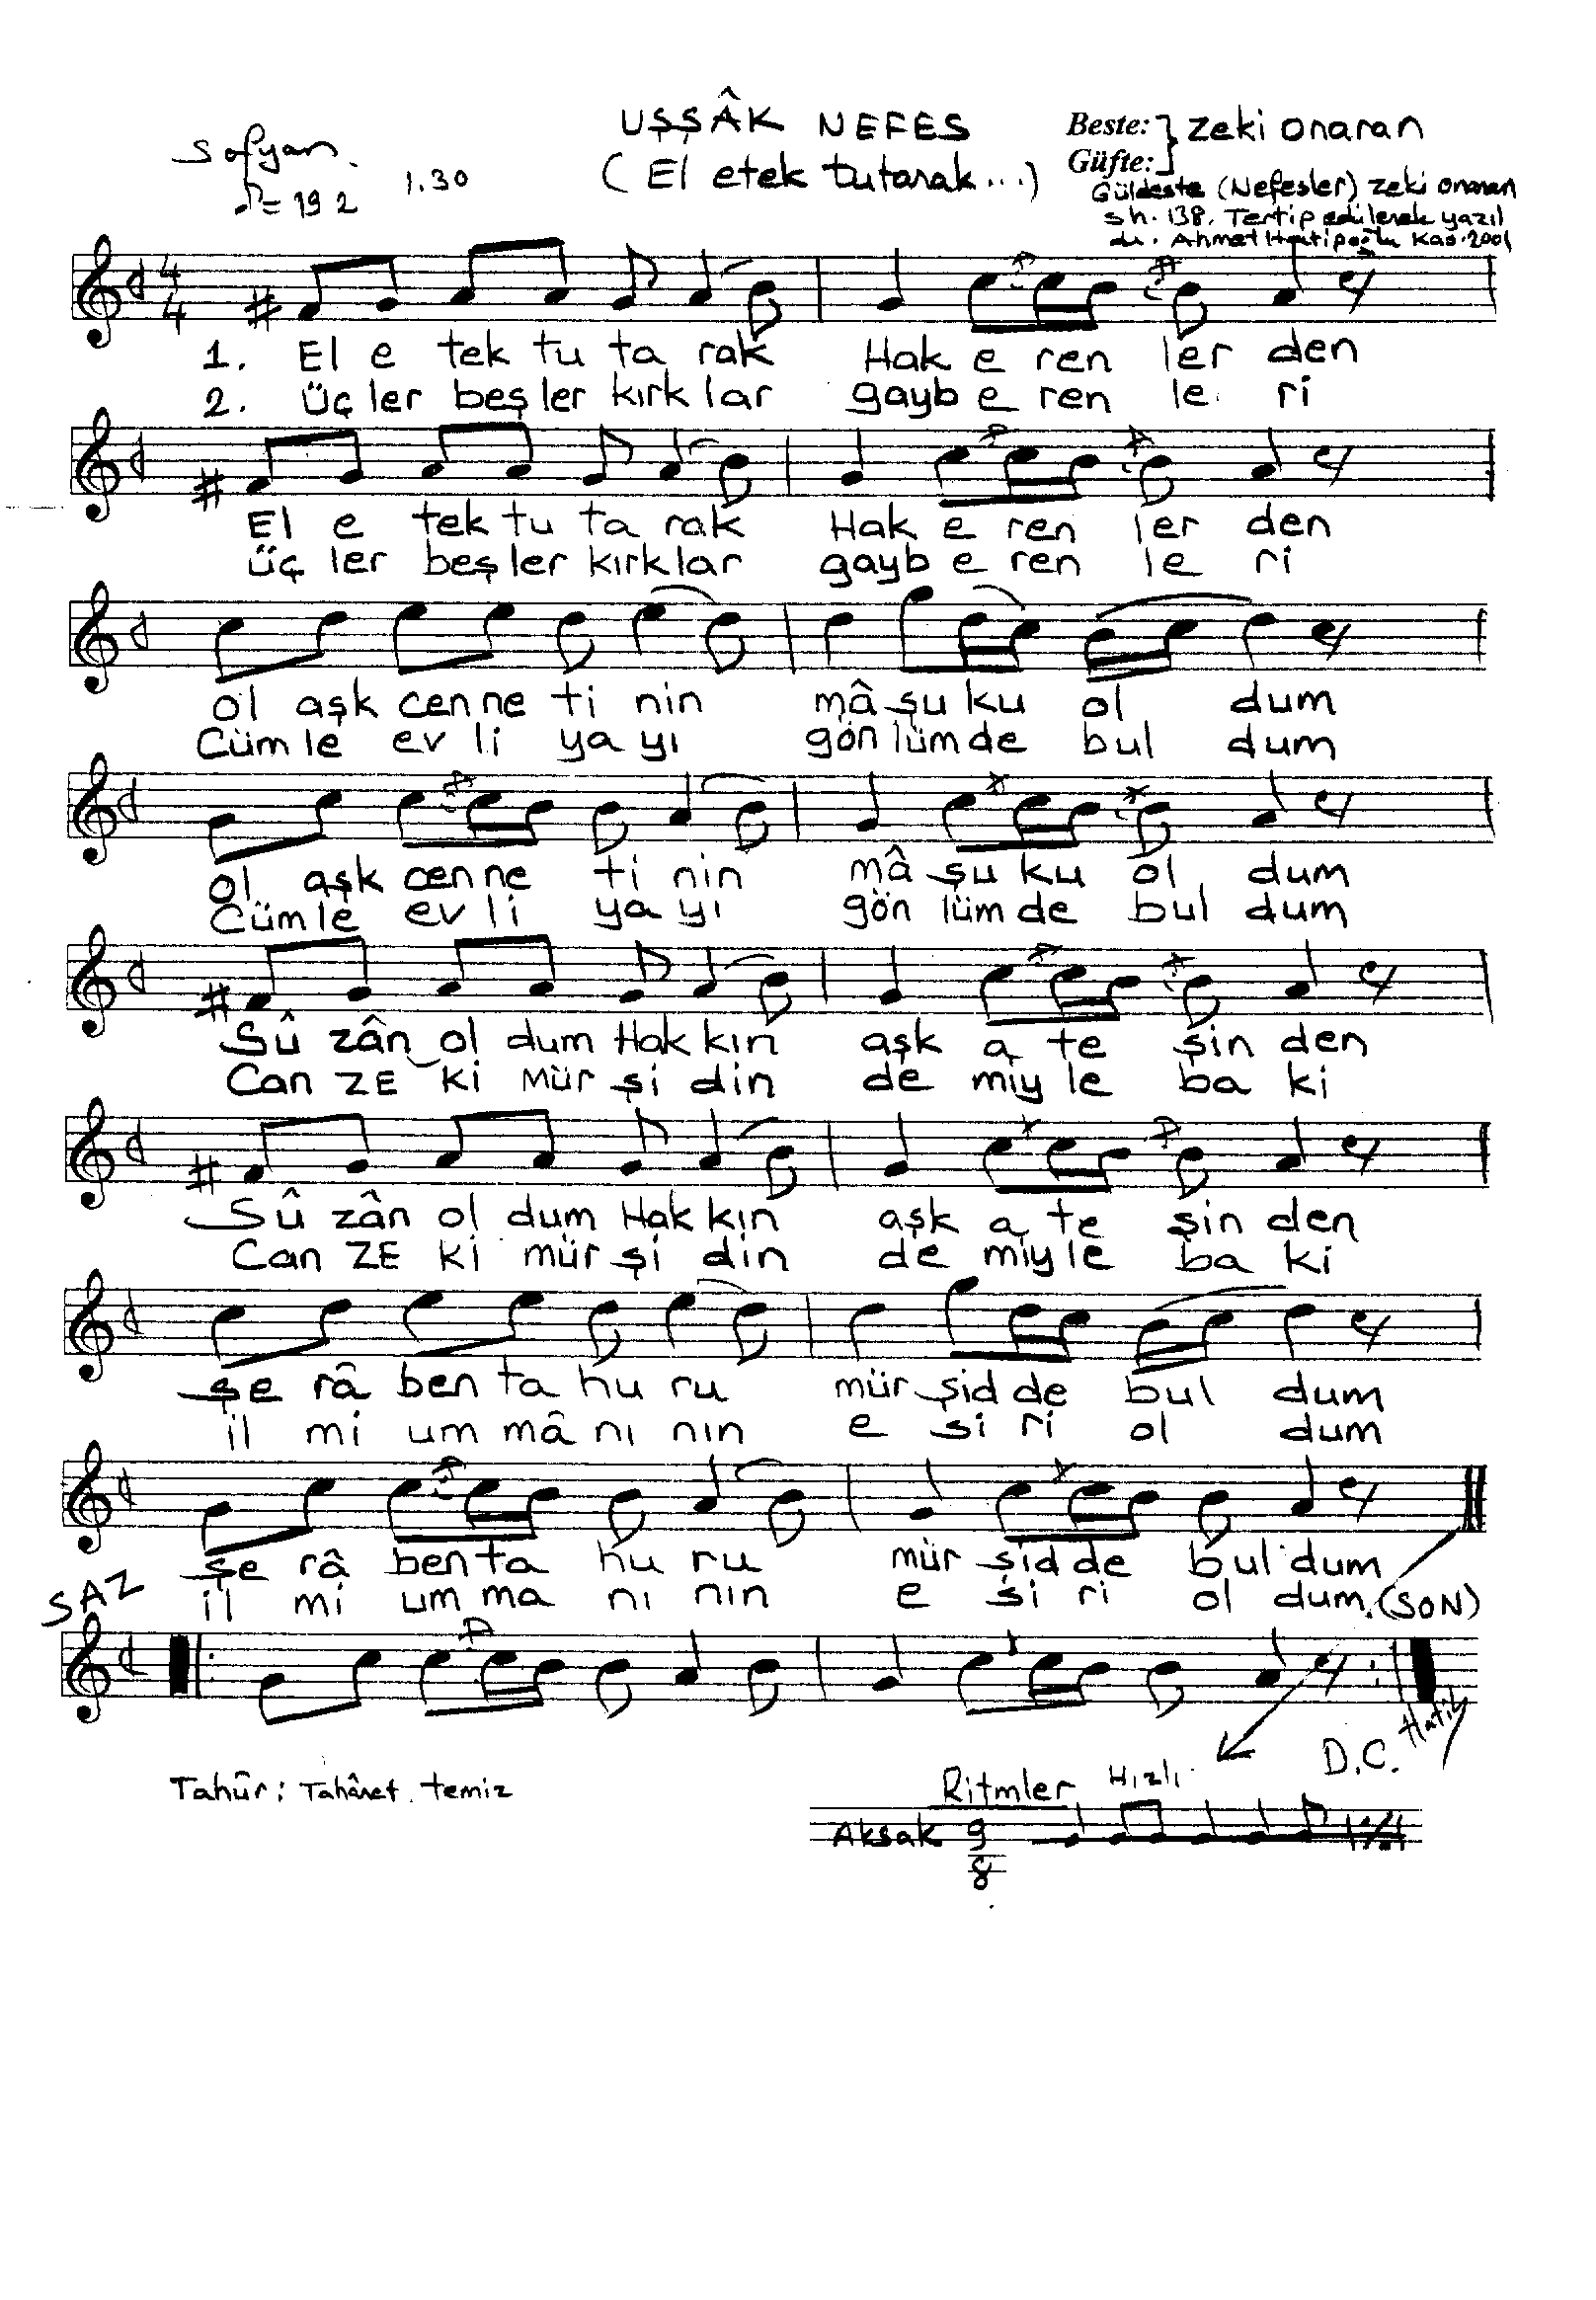 UŞŞÂK NEFES
Beste: Zeki Onaran
Güfte:
Sofyan.
(El etek tutarak...)
♪= 192
1.30
Güldeste (Nefesler) Zeki Onaran
sh. 138. Tertip edilerek yazıl
dı. Ahmet Hatipoğlu Kas. 2001
4
4
1. El e tek tu ta rak Hak e ren ler den
2. Üç ler beş ler kırk lar gayb e ren le ri
El e tek tu ta rak Hak e ren ler den
Üç ler beş ler kırk lar gayb e ren le ri
ol aşk cen ne ti nin mâ şu ku ol dum
Cüm le ev li ya yı gön lüm de bul dum
ol aşk cen ne ti nin mâ şu ku ol dum
Cüm le ev li ya yı gön lüm de bul dum
Sû zân ol dum Hak kın aşk a te şin den
Can ZE ki Mür şi din de miy le ba ki
Sû zân ol dum Hak kın aşk a te şin den
Can ZE ki mür şi din de miy le ba ki
şe râ ben ta hu ru mür şid de bul dum
il mi um mâ nı nın e si ri ol dum
şe râ ben ta hu ru mür şid de bul dum
il mi um ma nı nın e si ri ol dum. (SON)
SAZ
Hatip
D.C.
Tahûr: Tahâret. temiz
Ritmler Hızlı
Aksak 9
8